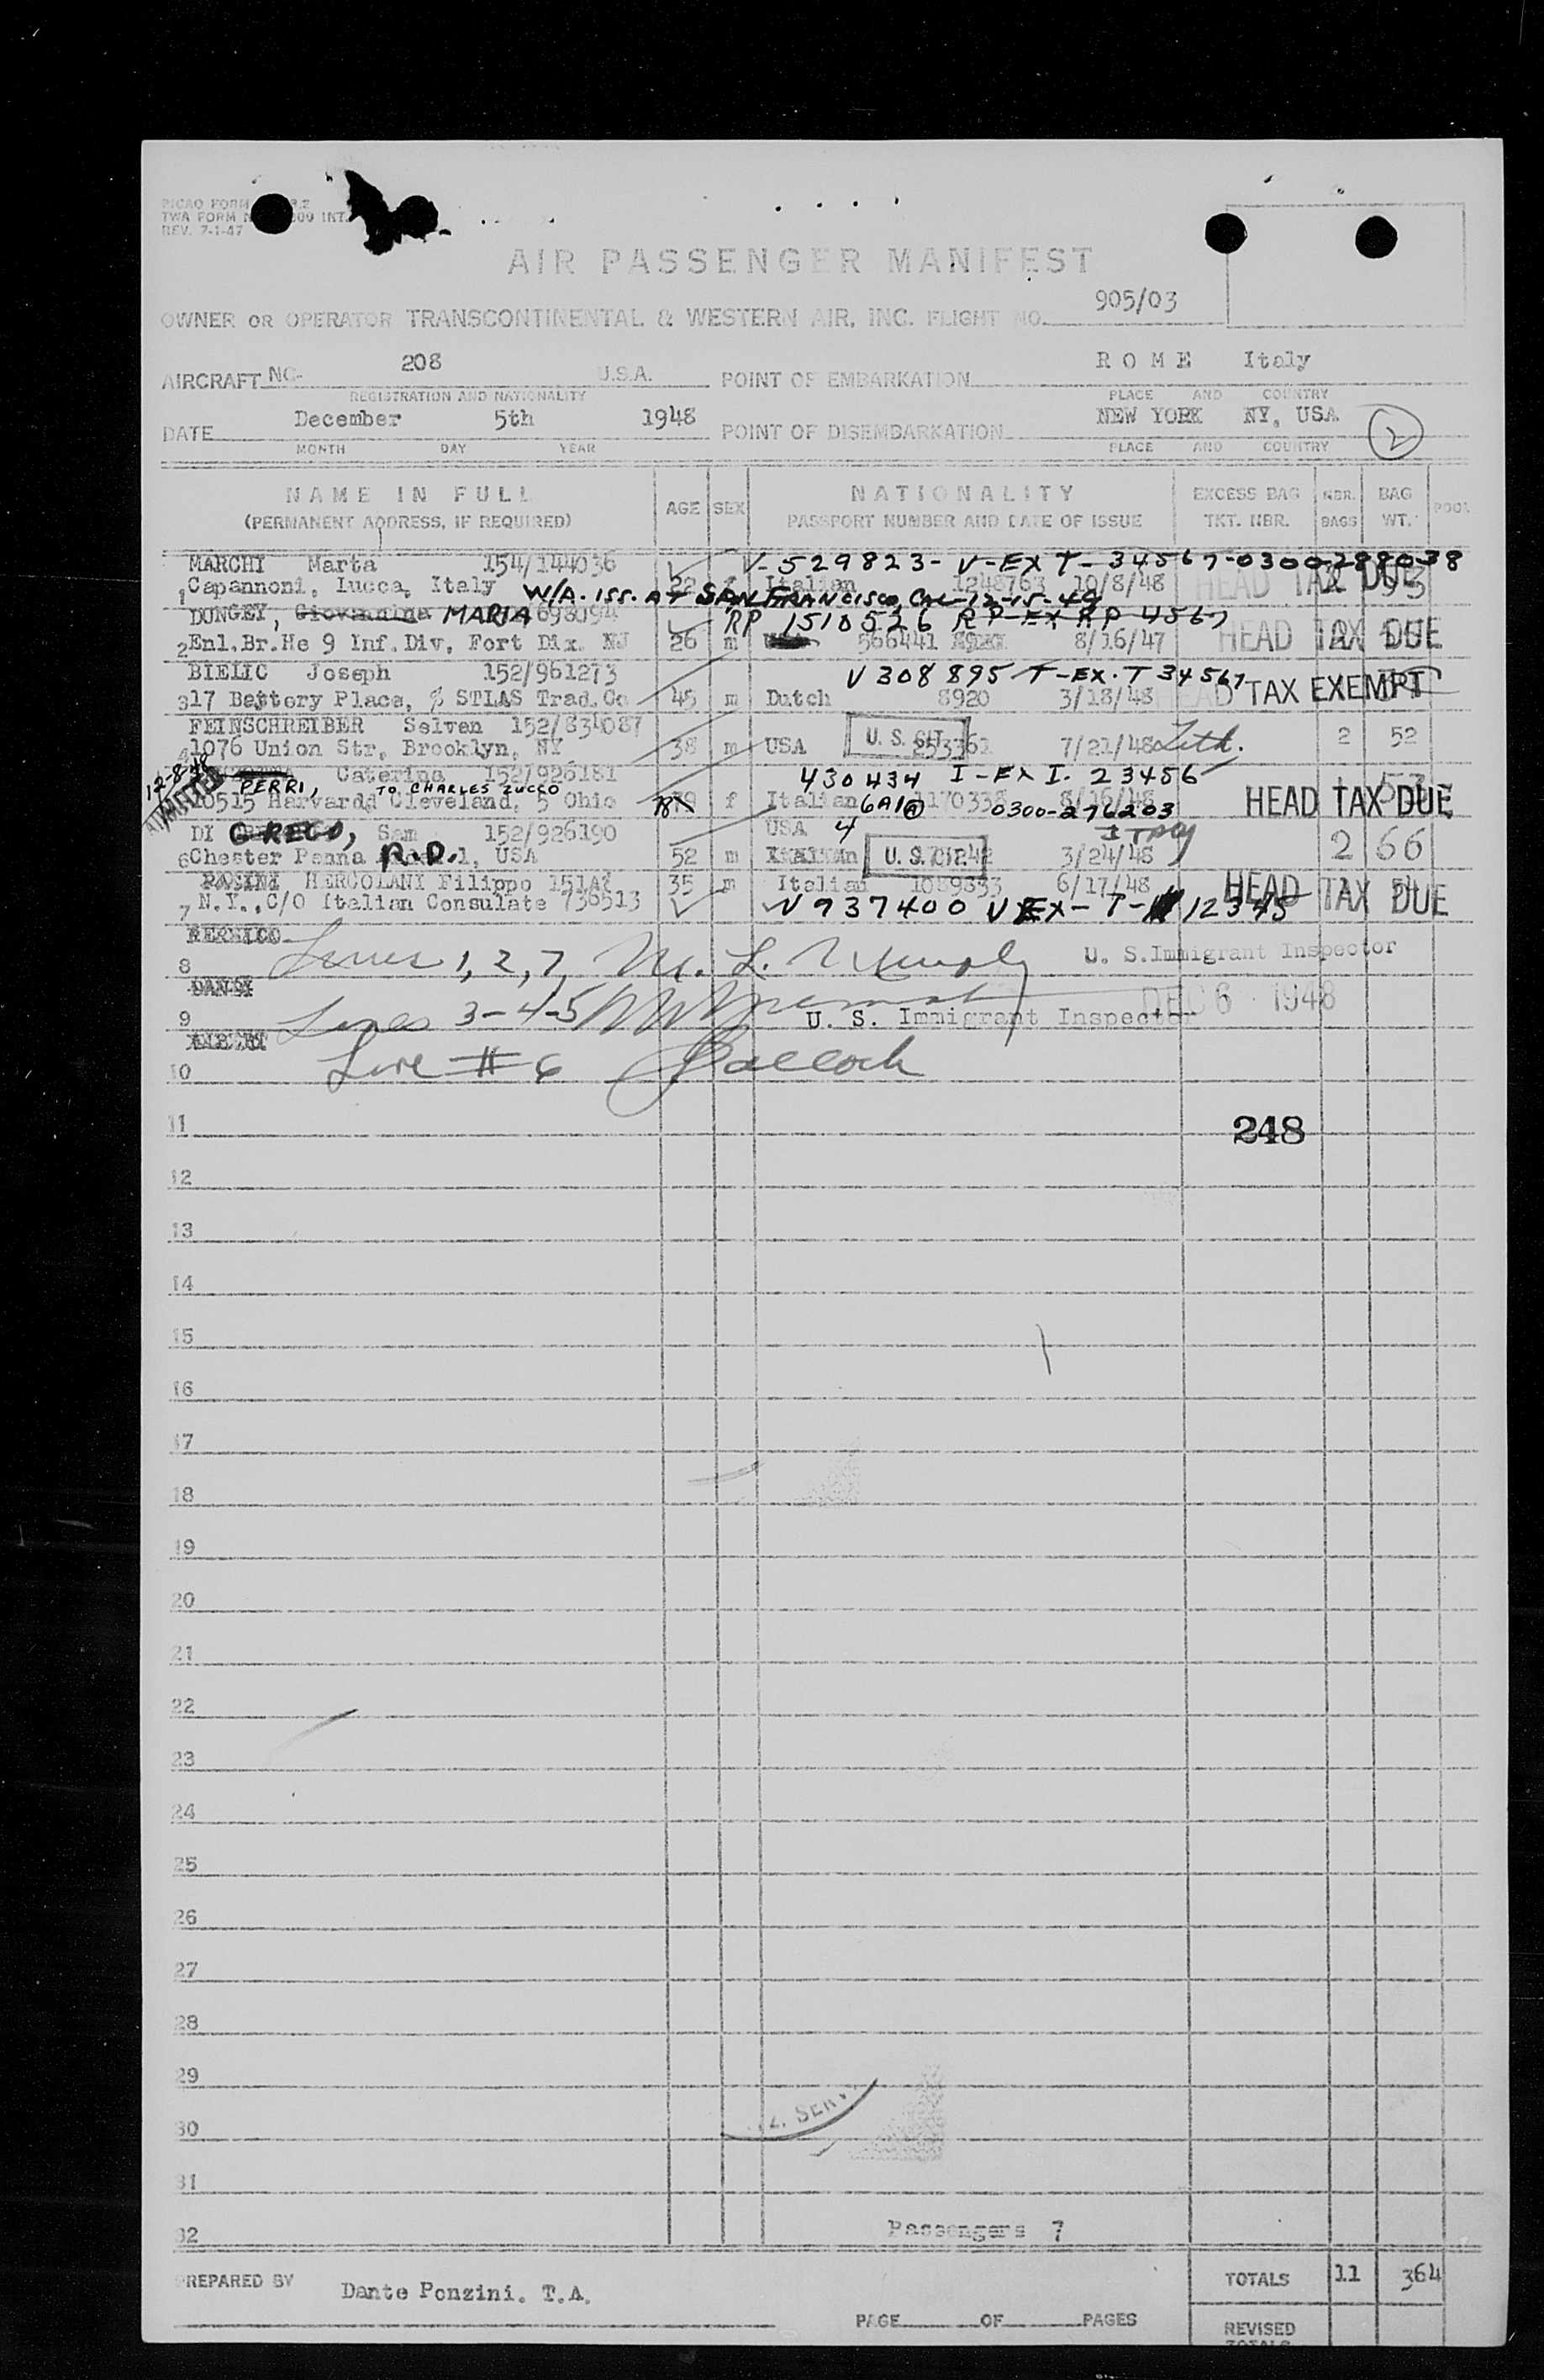 PICAO FORM
TWA FORM INT.
REV. 7-1-47
AIR PASSENGER MANIFEST
905/03
OWNER OR OPERATOR TRANSCONTINENTAL & WESTERN AIR, INC. FLIGHT NO.
208 ROME Italy
AIRCRAFT NC- U.S.A. POINT OF EMBARKATION
REGISTRATION AND NATIONALITY PLACE AND COUNTRY
December 5th 1948 NEW YORK NY, USA
DATE POINT OF DISEMBARKATION 2
MONTH DAY YEAR PLACE AND COUNTRY
NAME IN FULL AGE SEX NATIONALITY EXCESS BAG NBR. BAG POOL
(PERMANENT ADDRESS, IF REQUIRED) PASSPORT NUMBER AND DATE OF ISSUE TKT. NBR. BAGS WT.
MARCHI Marta 154/144036 V-529823- V-EX T-34567-0300-288038
1 Capannoni, Lucca, Italy 22 f Italian 1248763 10/8/48 HEAD TAX DUE
W/A. ISS. AT SAN FRANCISCO, CAL-12-15-49
DUNGEY, Giovannina MARIA 698094 RP 1510526 RP-EX RP 4567
2 Enl.Br.He 9 Inf.Div, Fort Dix. NJ 26 m 566441 8/16/47 HEAD TAX DUE
BIELIC Joseph 152/961273 V308895 T-EX.T 34567
3 17 Battery Place, % STLAS Trad.Co 45 m Dutch 8920 3/18/48 HEAD TAX EXEMPT
FEINSCHREIBER Selven 152/834087
4 1076 Union Str, Brooklyn, NY 38 m USA U. S. CIT. 253361 7/21/48 Lith. 2 52
12-8-48 PERRI, Caterina 152/926181 430434 I-EX I. 23456
ADMITTED TO CHARLES ZUCCO
10515 Harvardd Cleveland, 5 Ohio f Italian 6A1@ 1170338 8/16/48 0300-276203 HEAD TAX DUE
DI GRECO, Sam 152/926190 USA 4 ITALY
6 Chester Penna R.D. 1, USA 52 m Italian U. S. CIT. 3/24/48 2 66
PASINI HERCOLANI Filippo 151AZ 35 m Italian 1089833 6/17/48 HEAD TAX DUE
7 N.Y., C/O Italian Consulate 736513 V937400 V EX-T-12345
8 Lines 1, 2, 7, M. L. U. S. Immigrant Inspector
DEC 6 1948
9 Lines 3-4-5 U. S. Immigrant Inspector
10 Line #6
11 248
12
13
14
15
16
17
18
19
20
21
22
23
24
25
26
27
28
29
30
31
32 Passengers 7
PREPARED BY Dante Ponzini. T.A. TOTALS 11 364
PAGE OF PAGES REVISED
TOTALS